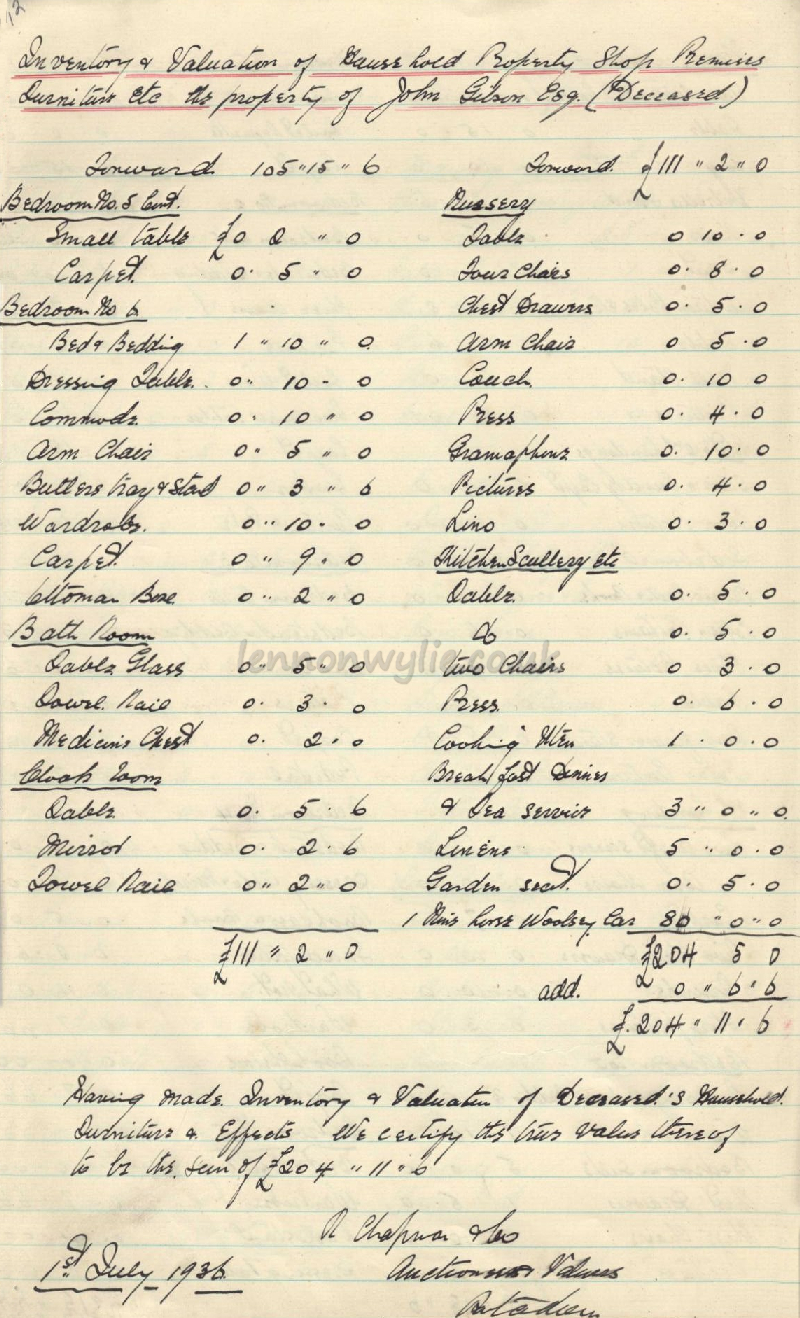 12
Inventory & Valuation of Household Property Shop Premises
Furniture etc the property of John Gilson Esq. (Deceased)
Forward 105 " 15 " 6
Bedroom No. 5 Cont.
Small table £0 2 " 0
Carpet 0 . 5 " 0
Bedroom No 6
Bed & Bedding 1 " 10 " 0
Dressing Table. 0 " 10 - 0
Commode 0 . 10 " 0
Arm Chair 0 " 5 " 0
Butlers tray & Stand 0 " 3 " 6
Wardrobe. 0 " 10 - 0
Carpet 0 " 9 . 0
Ottoman Box 0 " 2 " 0
Bath Room
Table Glass 0 " 5 " 0
Towel Rail 0 . 3 . 0
Medicine Chest 0 . 2 . 0
Cloak room
Table 0 . 5 . 6
Mirror 0 . 2 . 6
Towel Rail 0 " 2 " 0
£111 " 2 " 0
Forward. £111 " 2 " 0
Nursery
Table 0 10 . 0
Four Chairs 0 . 8 . 0
Chest Drawers 0 . 5 . 0
Arm Chair 0 5 . 0
Couch 0 . 10 0
Press 0 . 4 . 0
Gramaphone 0 . 10 . 0
Pictures 0 . 4 . 0
Lino 0 . 3 . 0
Kitchen Scullery etc
Table 0 . 5 . 0
Do 0 . 5 . 0
Two Chairs 0 3 . 0
Press 0 . 6 . 0
Cooking Uten 1 . 0 . 0
Breakfast Dinner
& Tea service 3 " 0 " 0
Linens 5 " 0 . 0
Garden seat. 0 . 5 . 0
1 Nine horse Woolsey Car 80 " 0 " 0
£204 5 0
add. 0 " 6 " 6
£204 " 11 " 6
lennonwylie.co.uk
Having made Inventory & Valuation of Deceased's Household
Furniture & Effects We certify the true value thereof
to be the sum of £204 " 11 " 6
R Chapman & Co
1st July 1936
Auctioneers Valuers